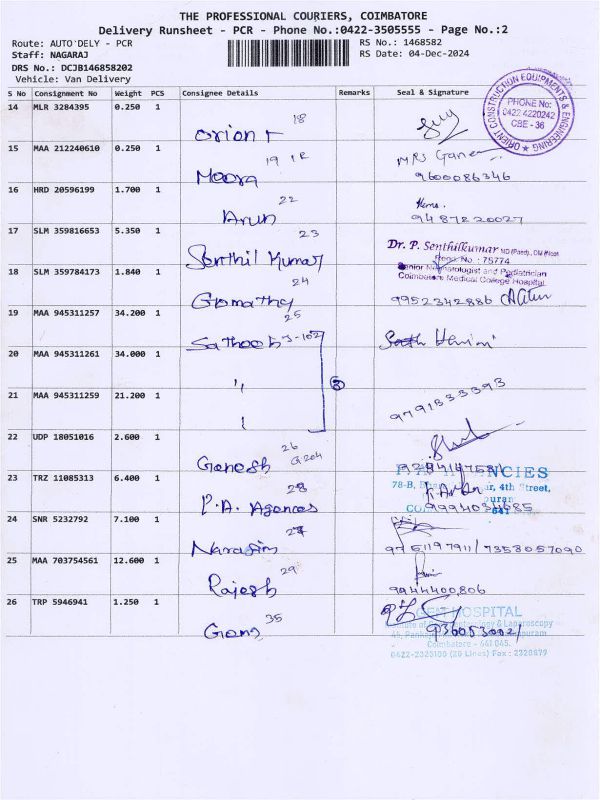 THE PROFESSIONAL COURIERS, COIMBATORE
Delivery Runsheet - PCR - Phone No.:0422-3505555 - Page No.:2
Route: AUTO DELY - PCR
RS No.: 1468582
Staff: NAGARAJ
RS Date: 04-Dec-2024
DRS No.: DCJB146858202
Vehicle: Van Delivery
S No Consignment No Weight PCS Consignee Details Remarks Seal & Signature
ORIENT CONSTRUCTION EQUIPMENTS & ENGINEERING
PHONE No:
0422 4220242
CBE - 36
14 MLR 3284395 0.250 1
Orient 18
15 MAA 212240610 0.250 1
Moora 19
9600086346
16 HRD 20596199 1.700 1
Arun 22
9487220027
17 SLM 359816653 5.350 1
Senthil Kumar 23
Dr. P. Senthilkumar
Regd No : 75774
Senior Neonatologist and Pediatrician
Coimbatore Medical College Hospital
18 SLM 359784173 1.840 1
Gomathy 24
9952342886
19 MAA 945311257 34.200 1
25
20 MAA 945311261 34.000 1
"
3
21 MAA 945311259 21.200 1
9791833393
22 UDP 18051016 2.600 1
Ganesh 26
G-204
23 TRZ 11085313 6.400 1
P.A. Agences 28
P.A. AGENCIES
4th Street,
9994034685
24 SNR 5232792 7.100 1
Narasim 27
9751197911 / 7358057090
25 MAA 703754561 12.600 1
Rajesh 29
9944400806
26 TRP 5946941 1.250 1
35
GEM HOSPITAL
Coimbatore - 641 045.
0422-2325100 (20 Lines) Fax : 2320879